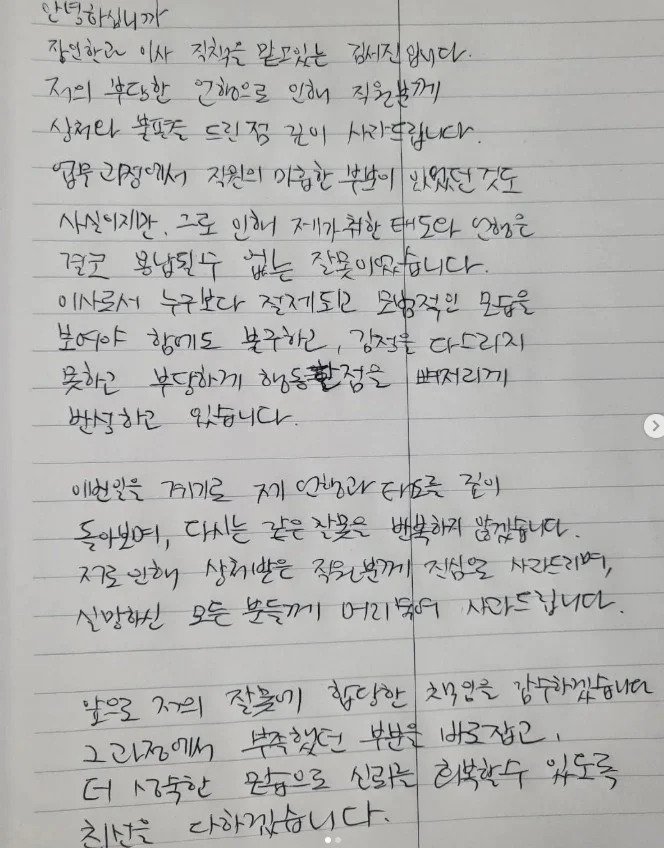 안녕하십니까
장인한과 이사 직책을 맡고있는 김서진입니다.
저의 부당한 언행으로 인해 직원분께
상처와 불편을 드린점 깊이 사과드립니다.
업무과정에서 직원의 미흡한 부분이 있었던것도
사실이지만, 그로 인해 제가취한 태도와 언행은
결코 용납될수 없는 잘못이였습니다.
이사로서 누구보다 절제되고 모범적인 모습을
보여야 함에도 불구하고, 감정을 다스리지
못하고 부당하게 행동한점을 뼈저리게
반성하고 있습니다.
이번일을 계기로 제 언행과 태도를 깊이
돌아보며, 다시는 같은잘못을 반복하지 않겠습니다.
저로인해 상처받은 직원분께 진심으로 사과드리며,
실망하신 모든 분들께 머리숙여 사과드립니다.
앞으로 저의 잘못에 합당한 책임을 감수하겠습니다
그과정에서 부족했던 부분을 바로잡고,
더 성숙한 모습으로 신뢰를 회복할수 있도록
최선을 다하겠습니다.